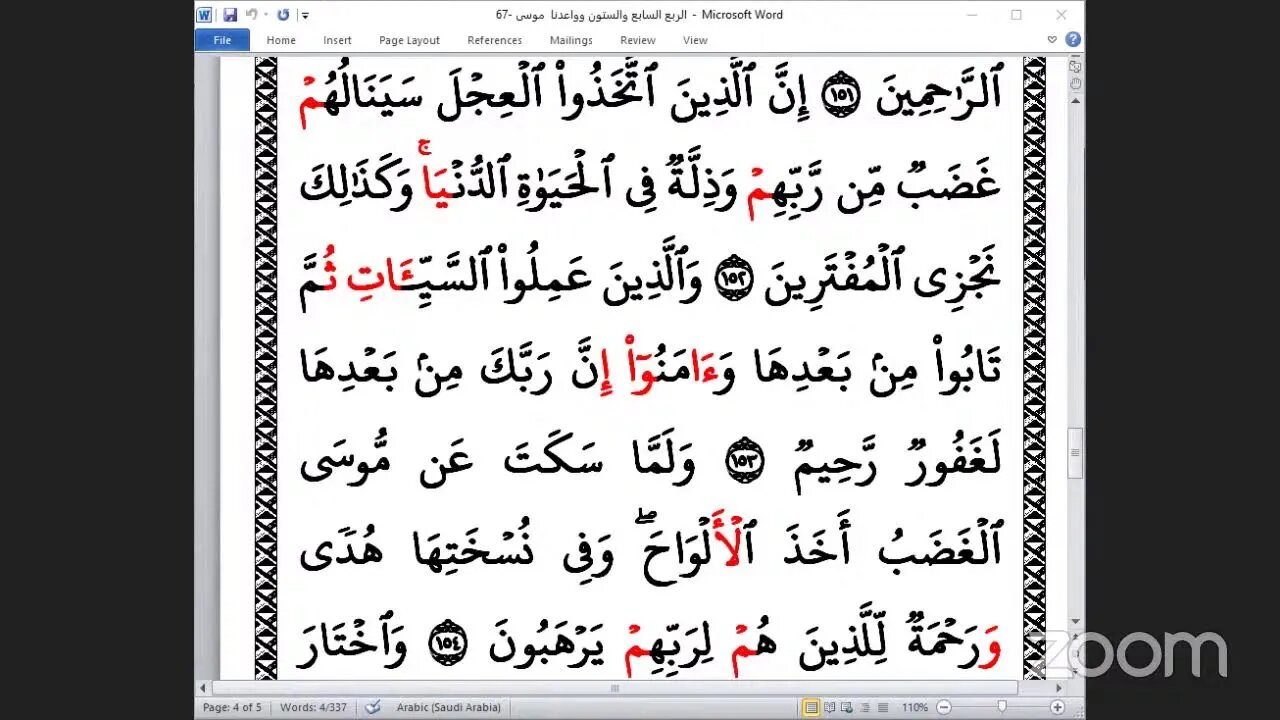 الربع السابع والستون وواعدنا موسى -67 - Microsoft Word
File Home Insert Page Layout References Mailings Review View
ٱلرَّٰحِمِينَ ١٥١ إِنَّ ٱلَّذِينَ ٱتَّخَذُواْ ٱلْعِجْلَ سَيَنَالُهُمْ
غَضَبٌ مِّن رَّبِّهِمْ وَذِلَّةٌ فِى ٱلْحَيَوٰةِ ٱلدُّنْيَا ۚ وَكَذَٰلِكَ
نَجْزِى ٱلْمُفْتَرِينَ ١٥٢ وَٱلَّذِينَ عَمِلُواْ ٱلسَّيِّـَٔاتِ ثُمَّ
تَابُواْ مِنۢ بَعْدِهَا وَءَامَنُوٓاْ إِنَّ رَبَّكَ مِنۢ بَعْدِهَا
لَغَفُورٌ رَّحِيمٌ ١٥٣ وَلَمَّا سَكَتَ عَن مُّوسَى
ٱلْغَضَبُ أَخَذَ ٱلْأَلْوَاحَ ۖ وَفِى نُسْخَتِهَا هُدًى
وَرَحْمَةٌ لِّلَّذِينَ هُمْ لِرَبِّهِمْ يَرْهَبُونَ ١٥٤ وَٱخْتَارَ
zoom
Page: 4 of 5 Words: 4/337 Arabic (Saudi Arabia) 110%